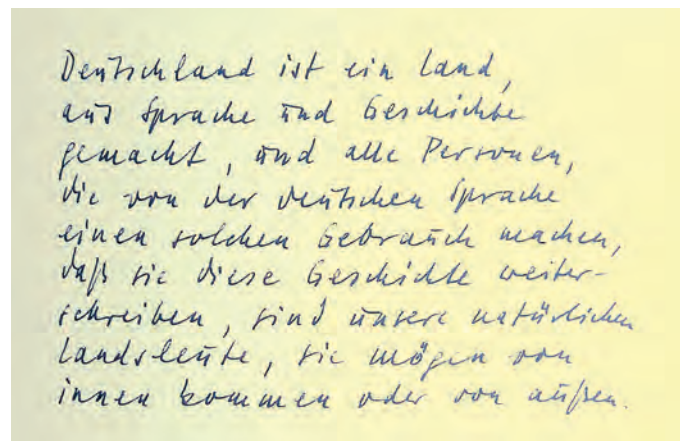 Deutschland ist ein Land,
aus Sprache und Geschichte
gemacht, und alle Personen,
die von der deutschen Sprache
einen solchen Gebrauch machen,
daß sie diese Geschichte weiter-
schreiben, sind unsere natürlichen
Landsleute, sie mögen von
innen kommen oder von außen.